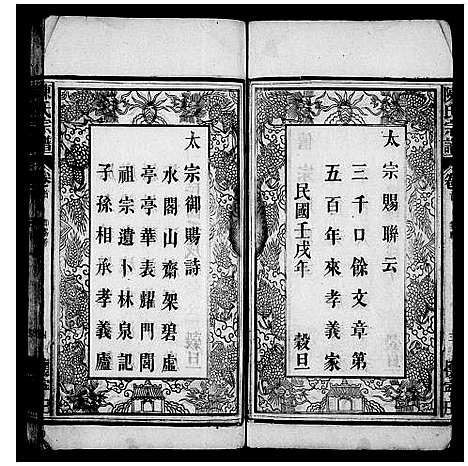 太宗賜聯云
三千口餘文章第
五百年來孝義家
民國壬戌年　穀旦
太宗御賜詩
水閣山齋架碧虛
亭亭華表耀門閭
祖宗遺卜林泉記
子孫相承孝義廬
陳氏宗譜